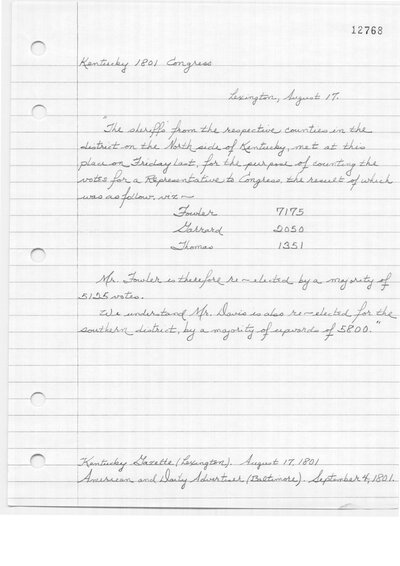 12768
Kentucky 1801 Congress
Lexington, August 17.
"The sheriffs from the respective counties in the
district on the North side of Kentucky, met at this
place on Friday last, for the purpose of counting the
votes for a Representative to Congress, the result of which
was as follow, viz—
Fowler 7175
Garrard 2050
Thomas 1351
Mr. Fowler is therefore re-elected by a majority of
5125 votes.
We understand Mr. Davis is also re-elected for the
southern district, by a majority of upwards of 5800."
Kentucky Gazette (Lexington). August 17, 1801
American and Daily Advertiser (Baltimore). September 4, 1801.